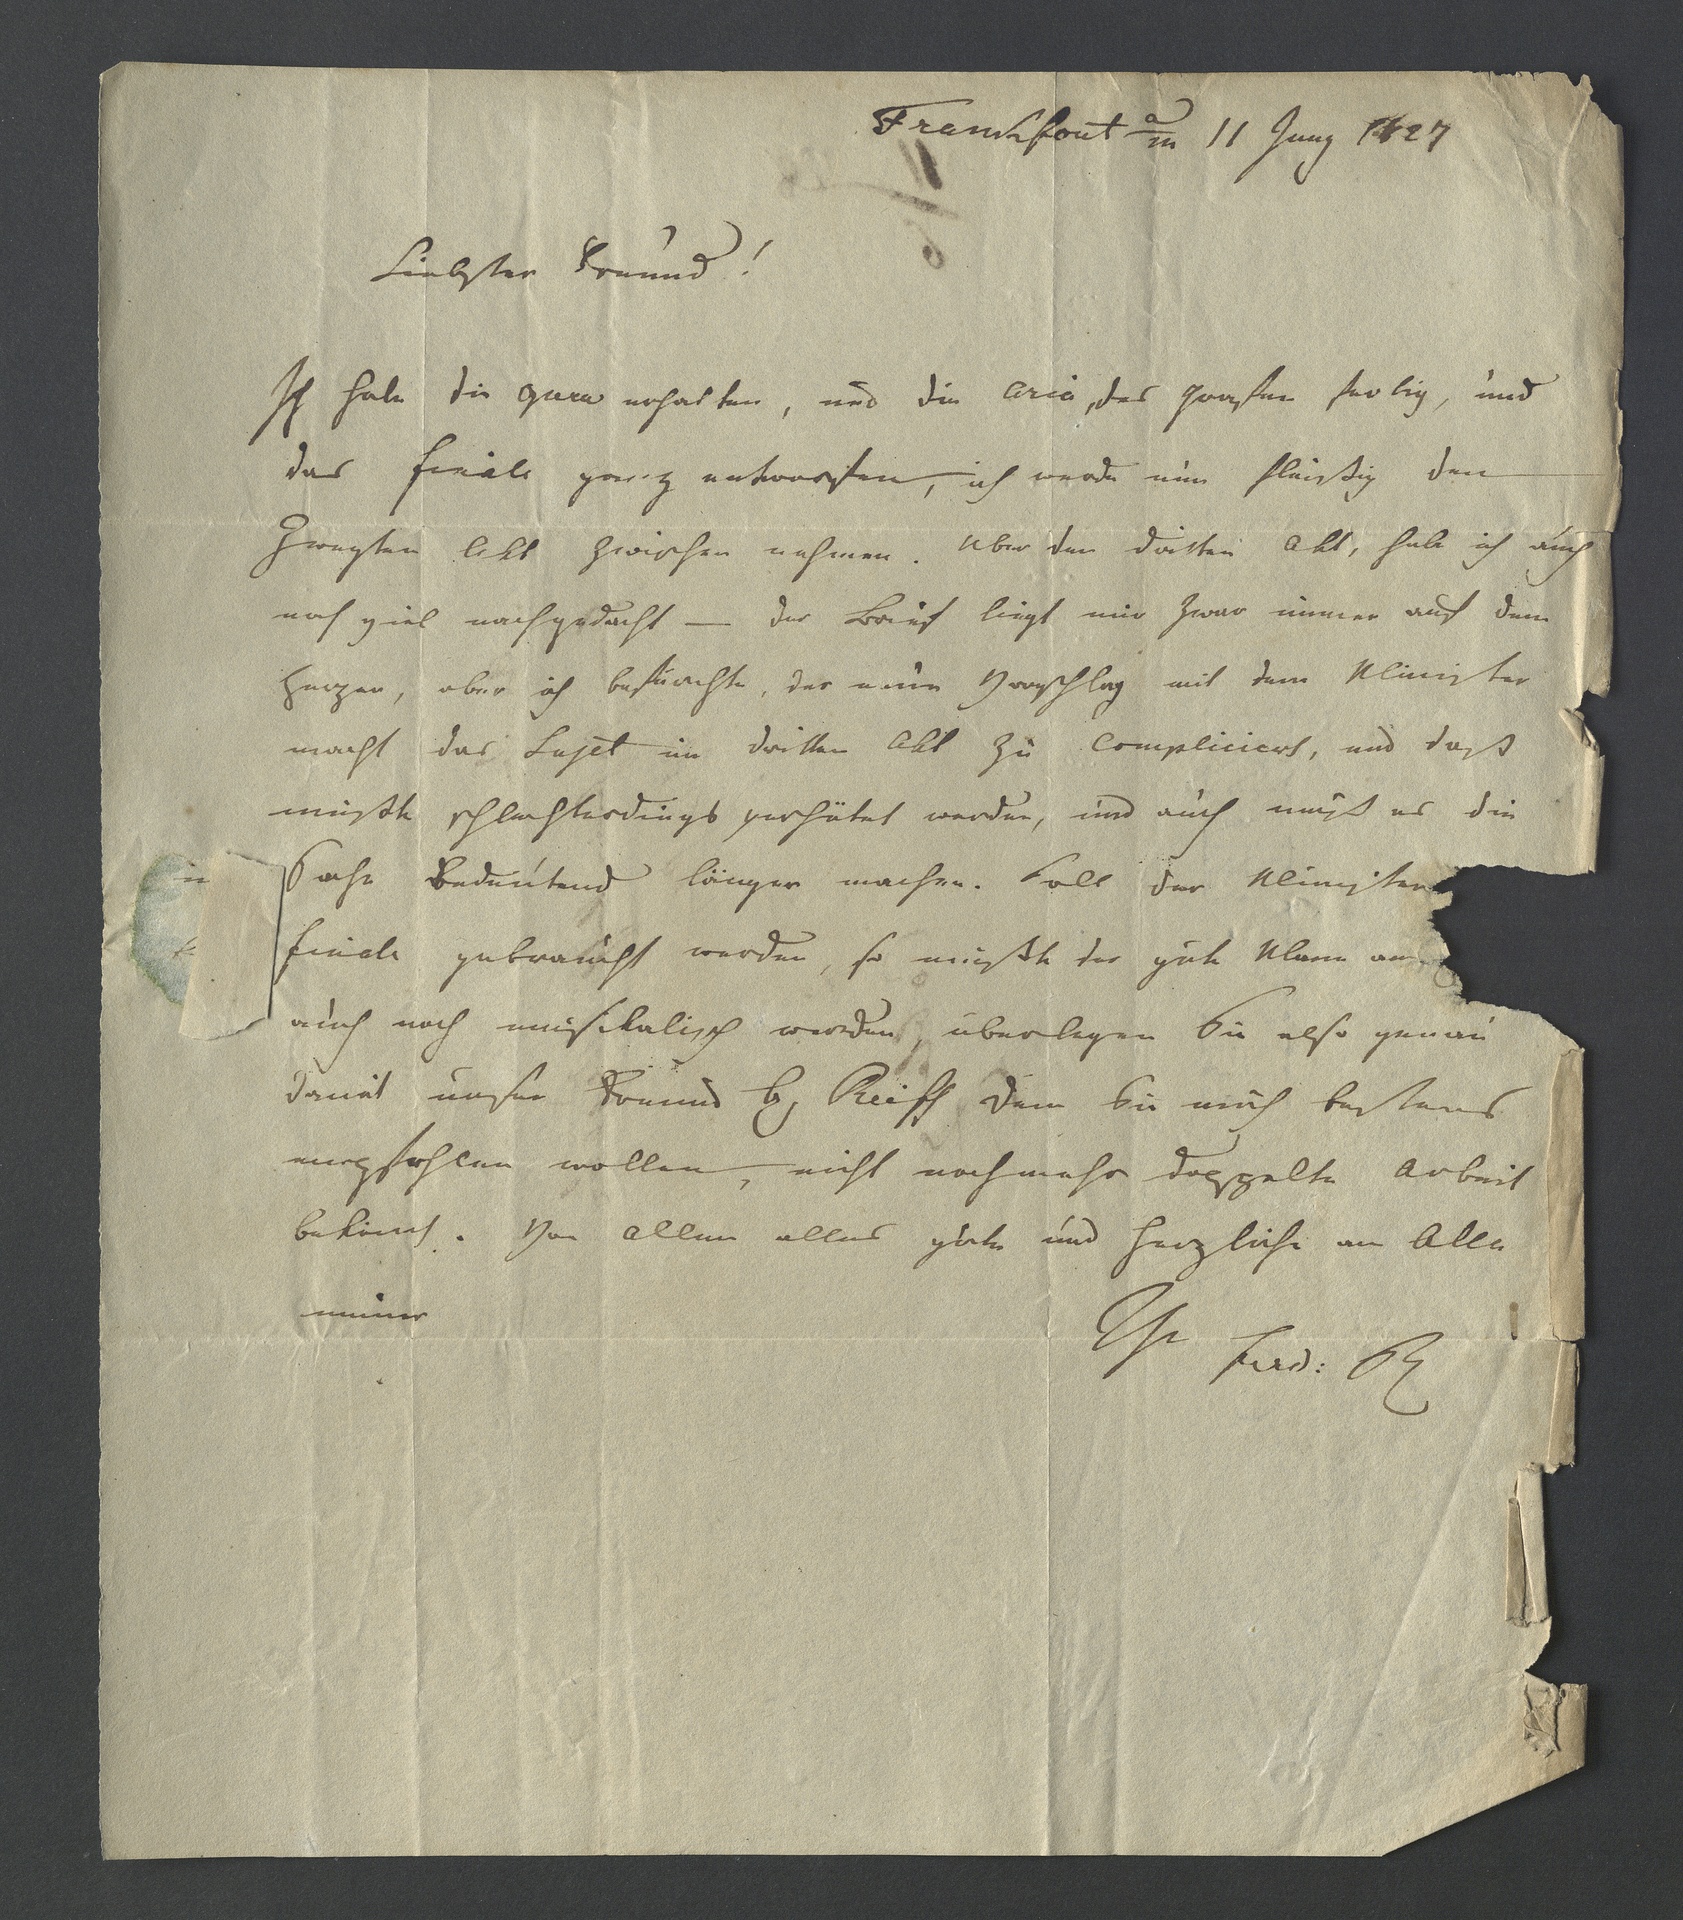 Frankfourt a/m 11 Juny 1827
Liebster Freund!
Ich habe die opera erhalten, und die Aria, des Grafen fertig, und
das finale ganz entworfen, ich werde nun fleißig den
Zweyten Akt zwischen nehmen. Uber den dritten Akt, habe ich auch
noch viel nachgedacht — der Brief liegt mir zwar immer auf dem
Herzen, aber ich befürchte, der neue Vorschlag mit dem Minister
macht das Sujet im dritten Akt zu compliciert, und daß
müßte schlechterdings verhütet werden, und auch muß es die
Sache Bedeutend länger machen. Soll der Minister
finale gebraucht werden, so müßte der gute Mann am
auch noch musikalisch werden, überlegen Sie also genau
damit unser Freund G. Reiff dem Sie mich bestens
empfehlen wollen, nicht nochmahr doppelte Arbeit
bekömt. Von allen alles gute und herzliche an Alle
immer
Ihr Ferd: R